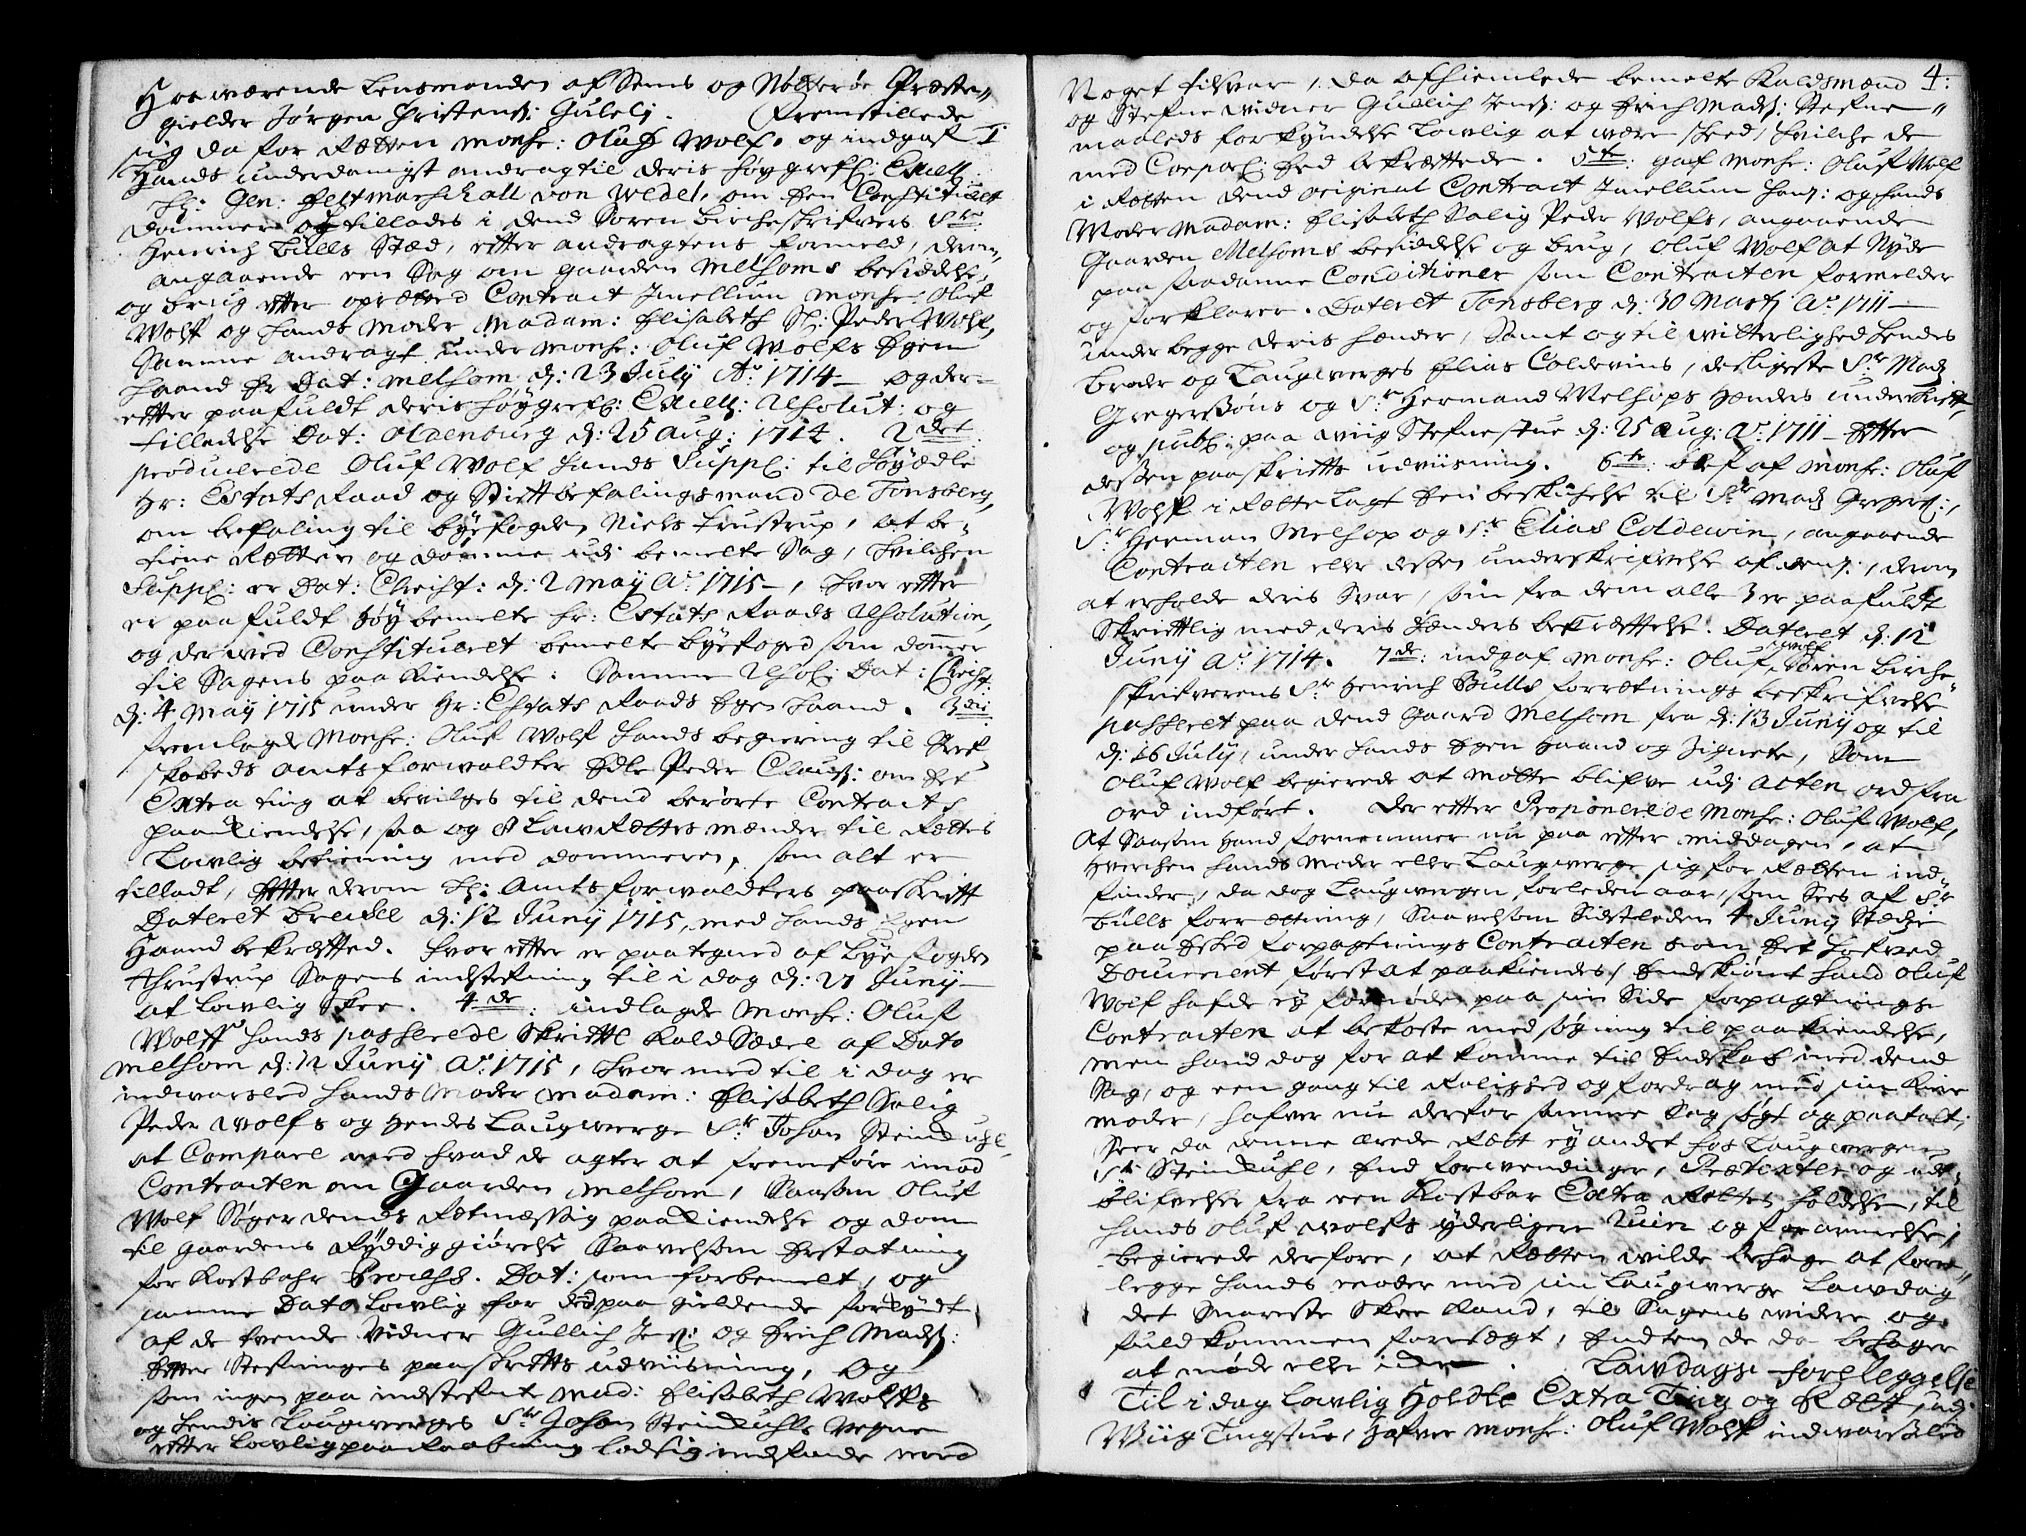 Hoswærende Lensmanden af Sems og Nøtterøe Præste„
gielder Jørgen Christenß: Gulelj. (Fremstillede
sig da for Retten Monsr: Oluf Wolf. og indgaf 1
Hands underdanigst andrag til deris Høygrefl: Excell
Hr: Gen: Feltmarschall von Wedel, om Een Constitueret
Dommer tillades i dend Soren Birchskrifvers Sr.
Henrich Bulls Stæd, efter andragtens formeld, derom„
angaaende een Sag om gaarden Melsoms besiddelse,
og brug efter oprætted Contract Imellum Monsr: Oluf
Wolff og hands Moder Madam: Elisabeth Sl: Peder Wolfs,
Samme andragt under Monsr: Oluf Wolfs Egen
haand Er Dat: Melsom d: 23 July Ao 1714 – og der–
efter paafuldt deris Høygrefl: Excell: Resolut: og
tilladelse Dat: Oldenburg d: 25 Aug: 1714. 2det.
producerede Oluf Wolf hands Suppl: til Høyædle
Hr: Estats Raad og Stiftbefalingsmand de Tonsberg,
om befaling til byefogden Niels Trustrup, at be-
tiene Retten og dømme udj bemelte Sag, hvilchen
Suppl: er Dat: Christ: d: 2 May Ao 1715 –, hvor efter
er paafuldt Høybemelte Hr: Estats Raads Resolution,
og derved Constitueret bemelte byefoged som dommer
til Sagens paakiendelse: Samme Resol: Dat: Christ:
d: 4 May 1715 under Hr: Estats Raads Egen haand. 3die
fremlagde Monsr: Oluf Wolf hands begiering til Gref„
skabeds amtsforwaldter Edle Peder Clauß: om Et
Extra ting at bevilges til dend berørte Contracts
paakiendelse, saa og 8 LawRættes mænder til Rettes
Lovlig betiening med dommeren, som alt er
tilladt, Efter derom Hr: Amtsforwaldters paaskrift
Dateret Brevell d: 12 Juny 1715, med hands Egen
Haand bekræftet. hvor efter er paategned af byefogden
Thrustrup Sagens indstefning til i dag d: 27 Juny –
at Lovlig Skee. 4de: indlagde Monsr: Oluf
Wolff hands passerede Skriftl Kald Sædel af Dato
Melsom d: 12 Juny Ao: 1715, hvor med til i dag er
indvarsled hands Moder Madam: Elisabeth Salig
Peder Wolfs og hendes Laugwerge Sr. Johan Steinkuhl
at Compare med hvad de agter at fremføre imod
Contracten om Gaarden Melsom, Saasom Oluf
Wolf Søger dends Retmæssig paakiendelse og dom
til gaardens Ryddiggiørelse Saavelsom Erstatning
for Kostbahr Process. Dat: som forbemelt, og
samme Dato Lovlig for ded paagieldende forkyndt
af de tvende Vidner Gullich Jenß: og Erich Madß:
Efter Stefninges paaskrifts udviisning, Og
som ingen paa indstefnte Mad: Elisabeth Wolffs
og hendis Laugwerges Sr. Johan Steinkuhls Vegne
efter Lovlig paaRaabning lod sig indfinde med
Noget tilsvar, da afhiemlede bemelte Kaldsmænd 4:
og Stefne widner Gullich Jenß: og Erich Madß: Stefne„
maaleds forkyndelse Lowlig at være skeed, hvilche de
med Corporl: Eed bekræftede. 5te: gaf Monsr: Oluf Wolf
i Retten dend original Contract Imellum hanß: og hands
Moder Madam: Elisabeth Salig Peder Wolfs, angaaende
Gaarden Melsoms besiddelse og brug, Oluf Wolf at Nyde
paa saadanne Conditioner som Contracten formelder
og forklarer. Dateret Tonsberg d: 30 Marty Ao 1711 –
under begge deris hænder, Samt og til witterlighed hendes
broder og Laugwerges Elias Coldevins, desligeste Sr. Madß
Gregersøns og Sr. Hermand Melhops hænders underskrift,
og publ: paa Wiig Stefnestue d: 25 Aug: Ao 1711 – Efter
dessen paaskrifts udviisning. 6te: blef af Monsr: Oluf
Wolff i Rette Lagt Een beskichelse til Sr. Madß Gregersß:,
Sr. Herman Melhop og Sr. Elias Coldewin, angaaende
Contracten eller dessen underskrifvelse af dens:, derom
at erholde deris Svar, som fra dem alle 3 er paafuldt
Skriftlig med deris hænders bekræftelse. Dateret d: 12
Juny Ao 1714. 7de: indgaf Monsr: Oluf Wolf Søren Birche„
skrifverens Sr. Henrich Bulls forretnings beskrifvelse
passeret paa dend Gaard Melsom fra d: 13 Juny og til
d: 16 July, under hands Egen haand og Signete, Som
Oluf Wolf begierede at motte blifve udj acten ord fra
ord indført. Der efter Proponerede Monsr: Oluf Wolf,
At Saasom hand fornemmer nu paa efter middagen, at
hverchen hands Moder eller Laugwerge sig for Retten ind-
finder, da dog Laugwergen forleden aar, som Sees af Sr.
Bulls forretning, Saavelsom Sidstleden 4 Juny Stædse
paaEsked forpagtnings Contracten som Det hofved
Document først at paakiendes, Endskiønt hand Oluf
Wolf hafde ey fornøden paa sin Side forpagtnings
Contracten at bekoste med søgning til paakiendelse,
men hand dog for at komme til Endskab med dend
Sag, og een gang til Rolighed og fordrag med sin kiere
moder, hafver nu derfor samme Sag søgt og paatalt;
Seer da denne ærede Rett ey andet hos Laugwergen
Sr. Steinkuhl, End forwendinger, Prætexter og ude„
blifvelse fra een Kostbar Extra Rettes holdelse, til
hands Oluf Wolfs yderligere Ruin og forarmelse,
begierede derfore, at Retten wilde behage at fore„
legge hands moder med sin Laugwerge Lawdag
det Snareste Skee kand, til Sagens widere og
fuldkommen foretægt, Endten de da behager
at møde eller icke. Lawdags forelæggelse
Til i dag Lovlig Holdte Extra Ting og Rett, udj
Wiig Tingstue, hafver Monsr: Oluf Wolff indvarsled